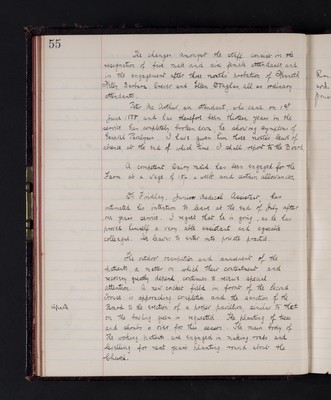 55
The changes amongst the staff consist in the
resignation of five male and six female attendants and
in the engagement after three months probation of
Barbara and Ellen Douglas all as ordinary
attendants.
Peter Mc Arthur an attendant, who came on 19th
June 1888 and has therefore been thirteen years in the
service has completely broken down, he showing symptoms of
General Paralysis. I have given him three months leave of
absence at the end of which time I shall report to the Board
A competent dairy maid has been engaged for the
Farm at a wage of 15/- a week and certain allowances.
Dr Findlay, Junior Medical Assistant, has
intimated his intention to leave at the end of July after
years service. I regret that he is going, as he has
proved himself a very able assistant and agreeable
colleague. He leaves to enter into private practice.
The outdoor occupation and amusement of the
patients a matter on which their contentment and
recovery greatly depend continues to receive special
attention. A new cricket field in front of the Second
House is approaching completion and the sanction of the
Board to the erection of a small pavilion similar to that
on the bowling green is requested. The planting of trees
and shrubs is over for this season. The main body of
the working patients are engaged in making roads and
for next years planting round about the
Church.